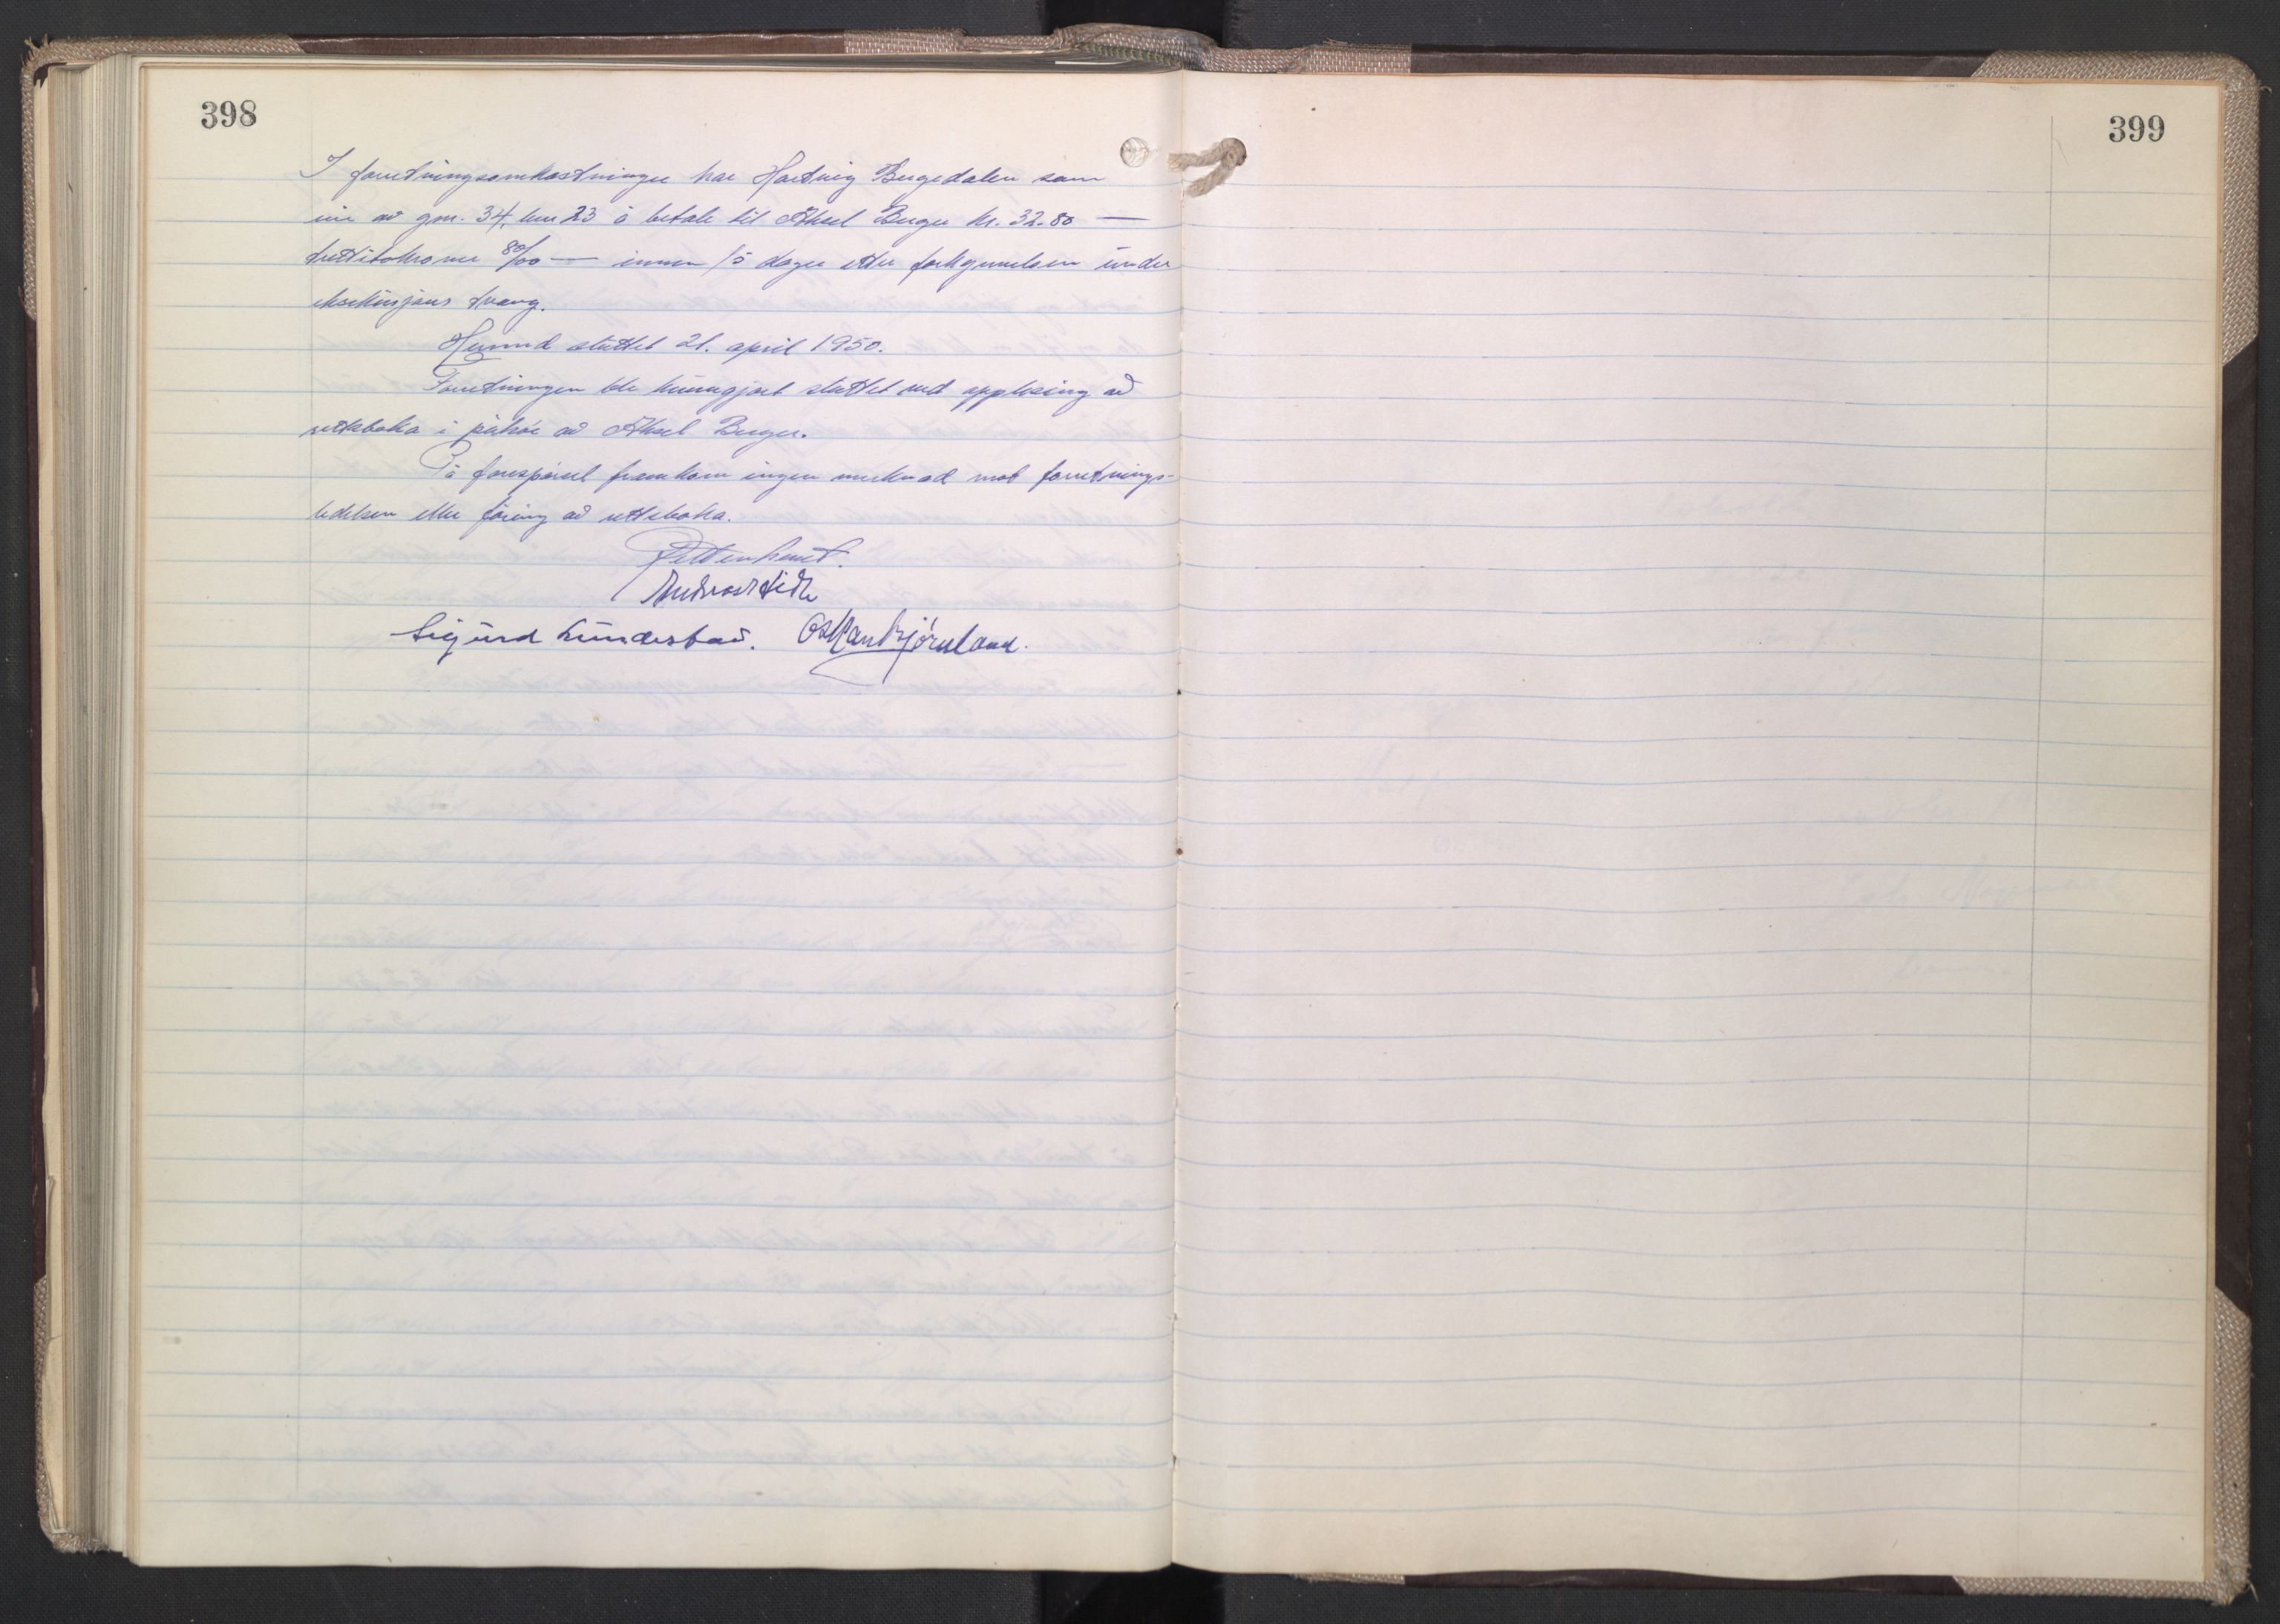 398
I forretningsomkostninger har Hartvig Bergedalen som
eier av gnr. 34, bnr 23 å betale til Aksel Berger kr. 32.80 —
trettitokroner 80/00 — innen 15 dager etter forkynnelsen under
eksekusjons tvang.
Hermed sluttet 21. april 1950.
Forretningen ble kunngjort sluttet ved opplesing av
rettsboka i påhør av Aksel Berger.
På forespørsel framkom ingen merknad mot forretnings-
ledelsen eller føring av rettsboka.
Retten hevet.
Sigurd Lundestad. Oskar Bjørnland.
399